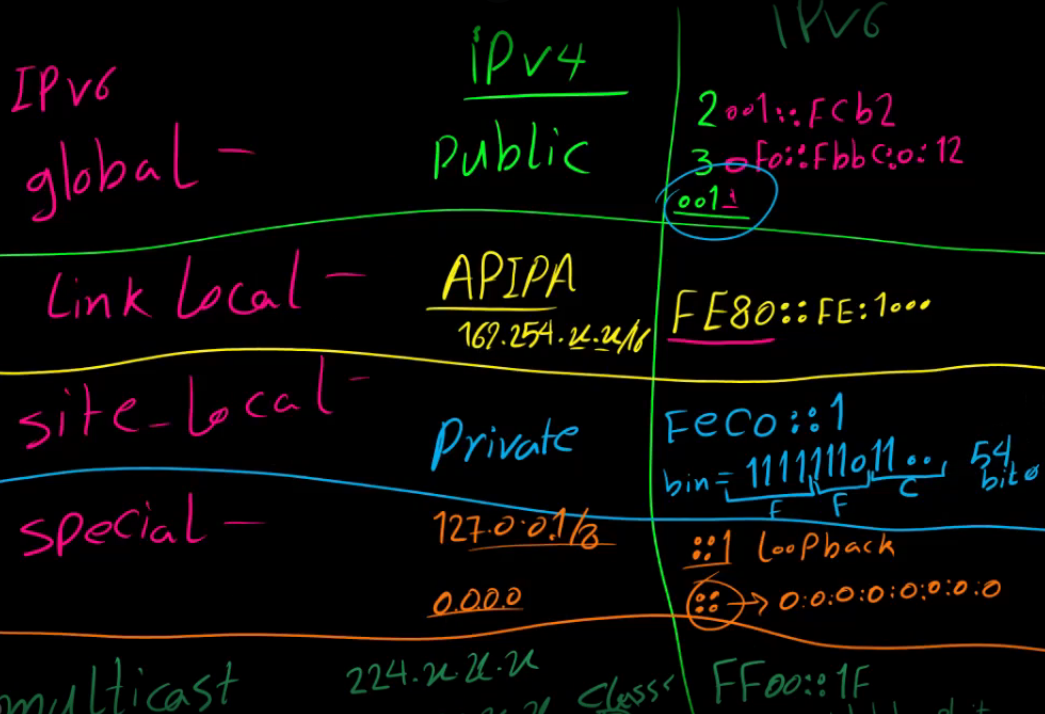 IPv6
iPv4
IPv6
global -
Public
2001::FCb2
3oFo::FbbC:o:12
0011
Link Local -
APIPA
169.254.x.x/16
FE80::FE:1000
site_Local -
Private
FeCo::1
bin= 1111111011.. 54 bits
F F C
special -
127.0.0.1/8
::1 LooPback
0.0.0.0
:: → 0:0:0:0:0:0:0:0
multicast
224.x.x.x
Class
FF00::1F